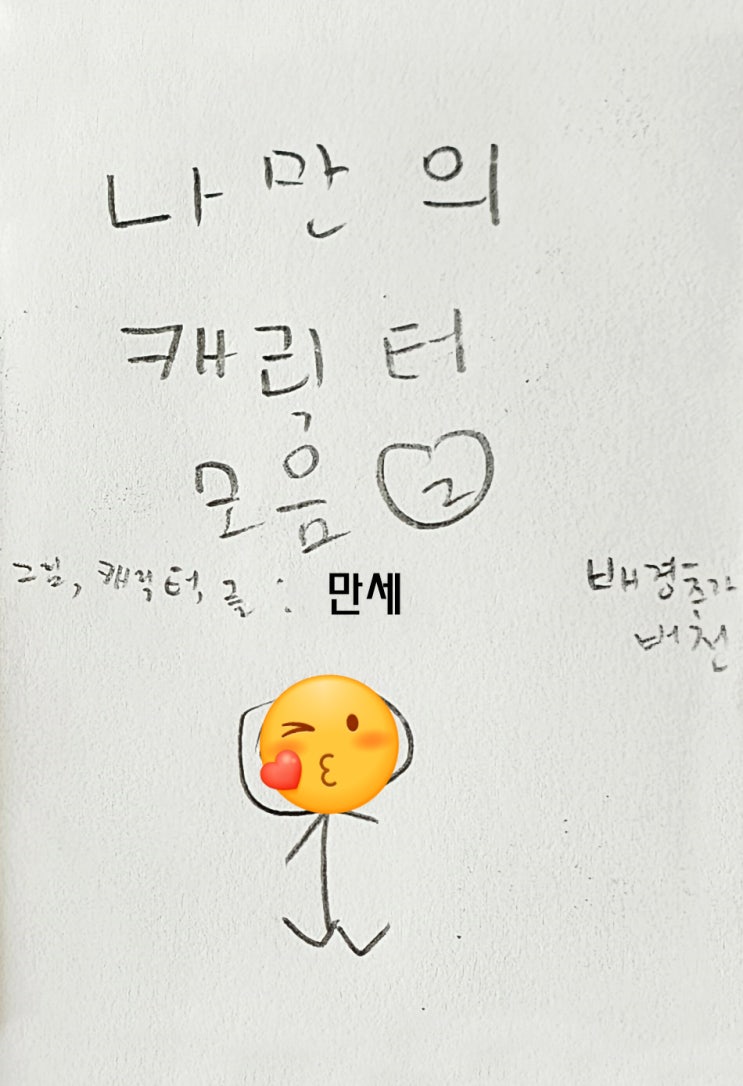 나만의
캐릭터
모음 2
그림, 캐릭터, 글 : 만세
배경추가
버전